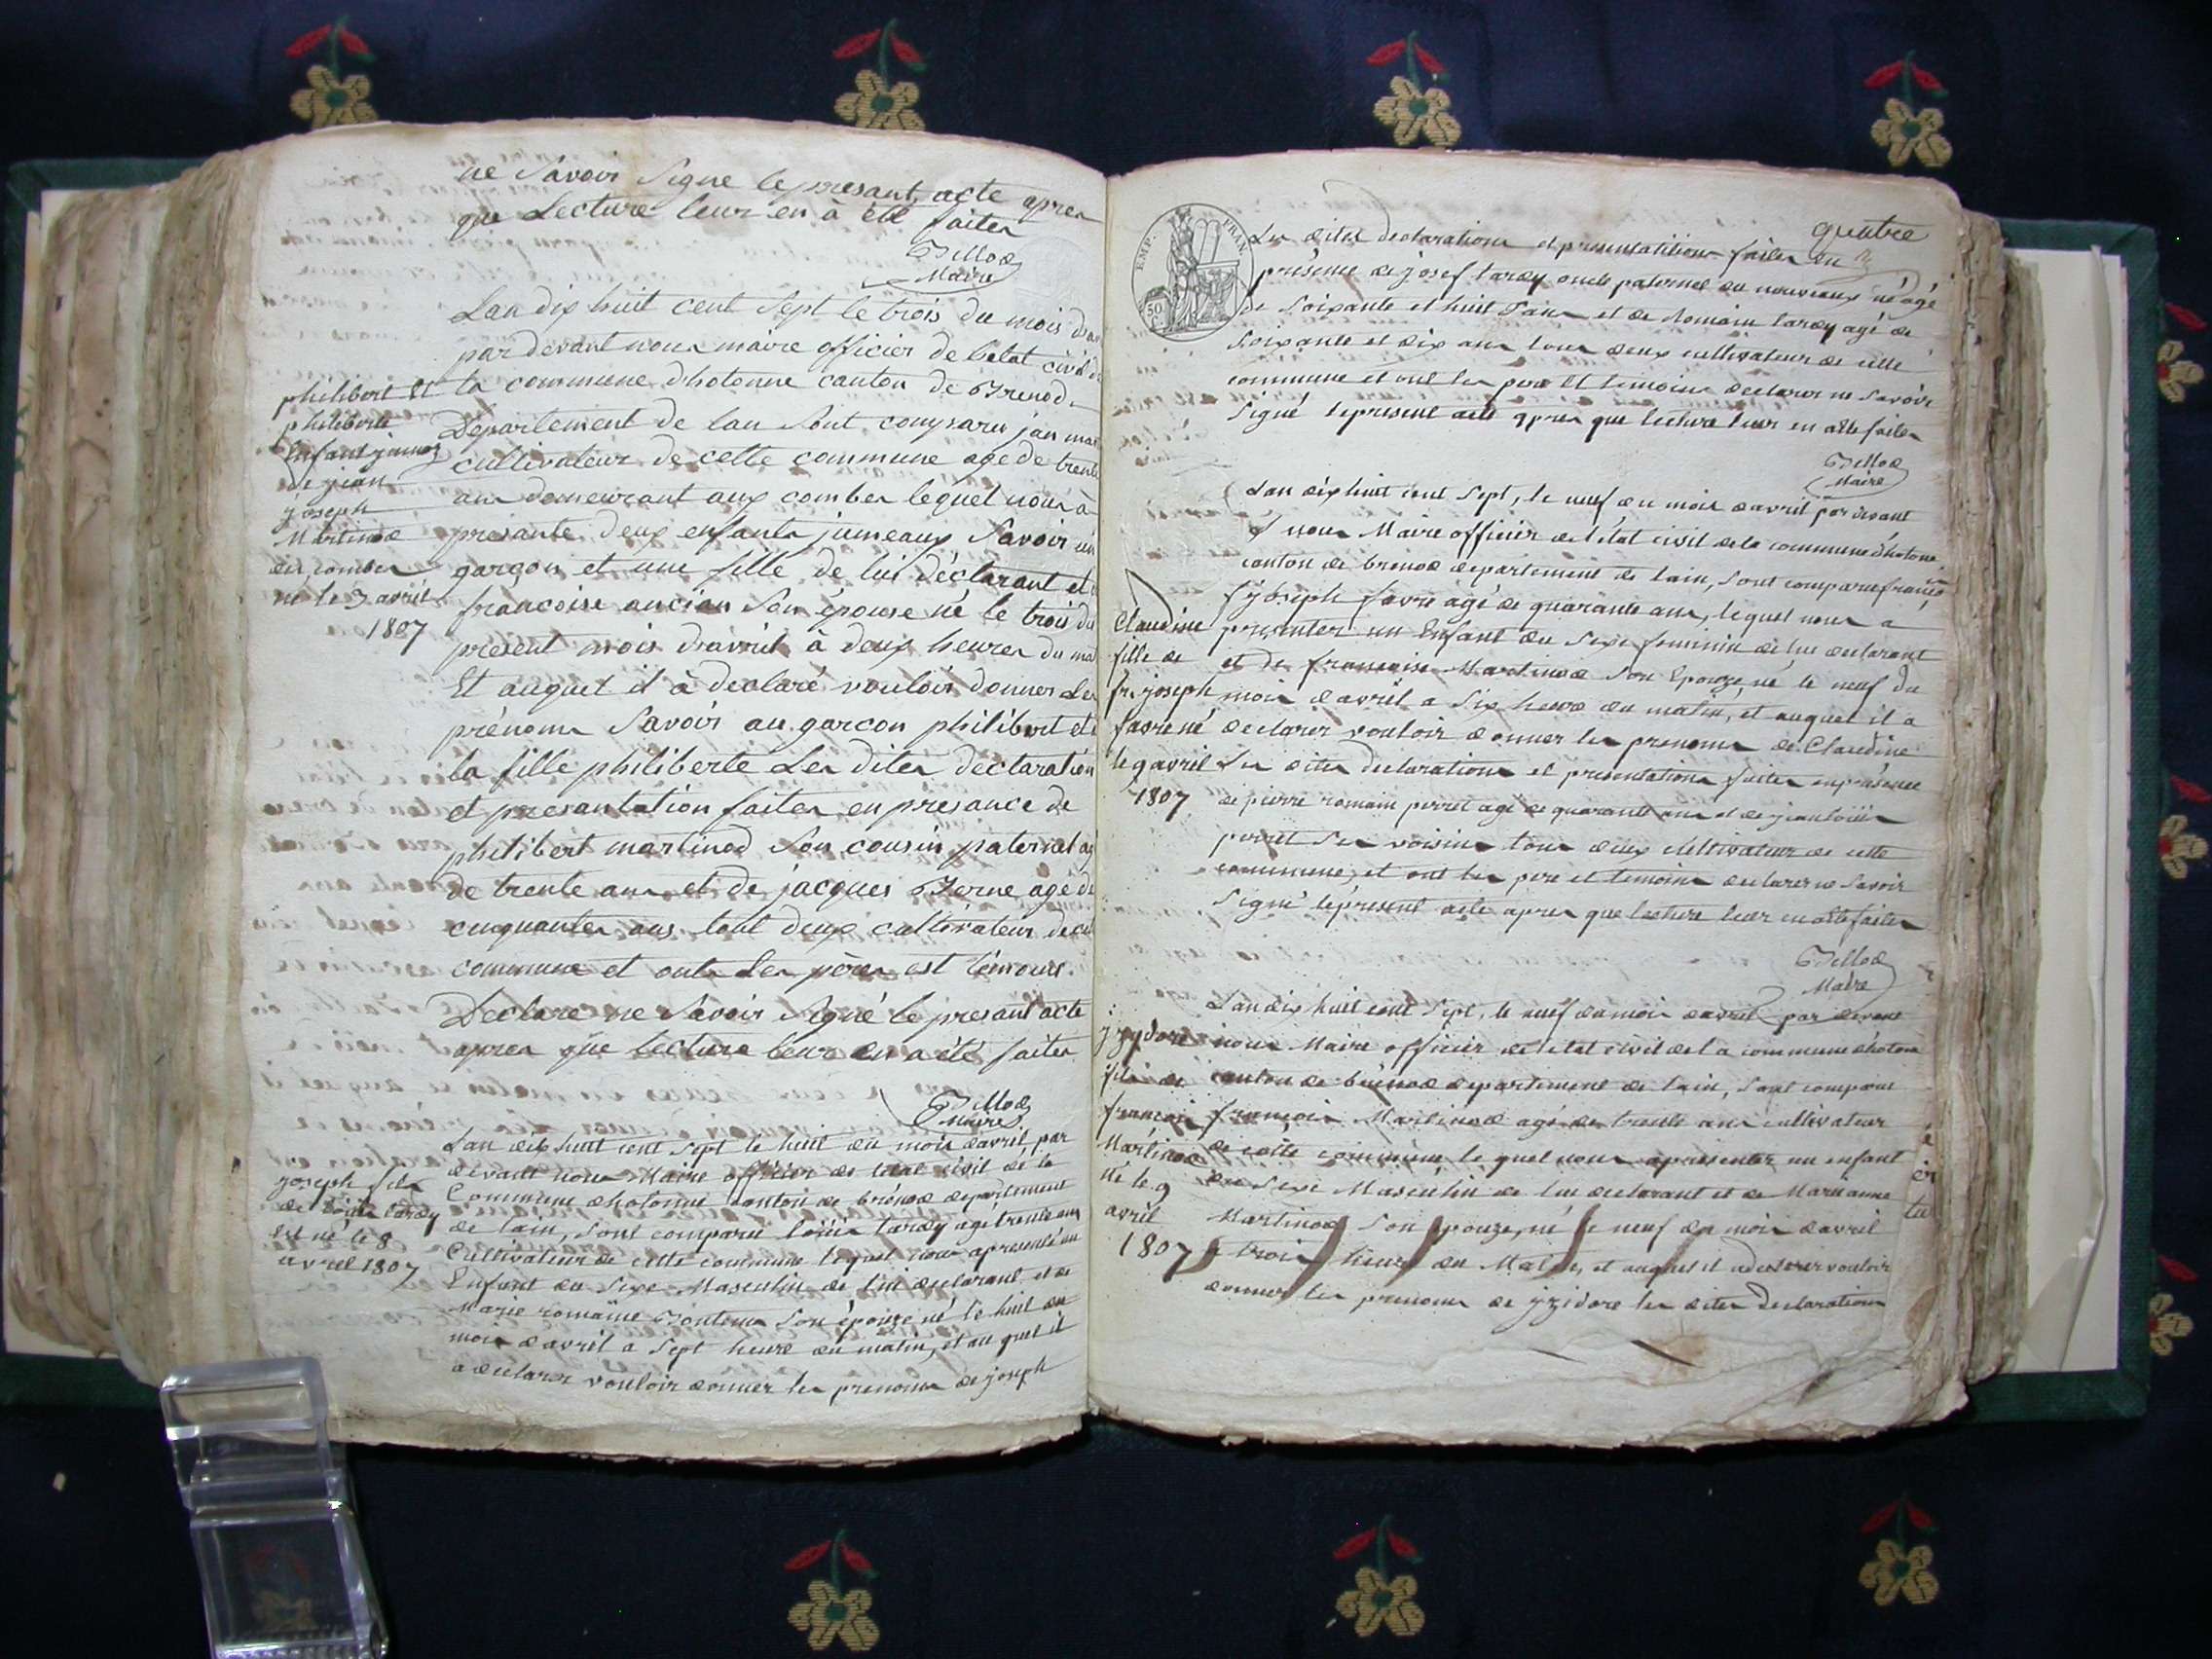 ne Savoir Signe le presant acte apres
que Lecture leur en à été faites
Billod
Maire
Lan dix huit cent Sept le trois du mois
par devant nous maire officier de letat civil
la commune dhotonne canton de Brenod
Departement de lau Sont comparu jan
cultivateur de cette commune age de trente
ans demeurant aux combes lequel nous à
presante deux enfants jumeaux Savoir un
garçon et une fille de lui déclarant et
francoise ancian Son épouse né le trois du
présent mois davril à deux heures du
Et auquel il à declaré vouloir donner Les
prénoms Savoir au garcon philibert et
la fille philiberte Les dites declaration
et presantation faites en presance de
philibert martinod Son cousin paternel
de trente ans et de jacques Berne agé de
cinquantes ans tout deux cultivateur de
commune et onts Les pères est témoins
Declare ne Savoir Signé le presant acte
apres que lecture leur en a été faites
Billod
Maire
philibert et
philiberte
Enfant jumos
de jean
joseph
Martinod
des combes
né le 3 avril
1807
Lan dix huit cent Sept le huit du mois davril, par
devant nous Maire officier de letat civil de la
Commune dhotonne canton de brénod departement
de lain, Sont comparu Loüis tardy agé trente ans
Cultivateur de cette commune lequel nous apresenté un
Enfant du Sexe Masculin de lui declarant et de
Marie romaine Son épouze né le huit du
mois davril a Sept heure du matin, et au quel il
a declarer vouloir donner les prenoms de joseph
joseph fils
de Loüis tardy
est né le 8
avril 1807
quatre
EMP. FRAN.
50
Les dites declarations et presentatitions faites en
présence de josef tardy oncle paternel du nouveaux né agé
de Soixante et huit ans et de Romain tardy agé de
Soixante et dix ans tous deux cultivateur de cette
commune et ont les pere et temoins declarer ne Savoir
Signé lepresent acte apres que lecture leur en aété faites
Billod
Maire
Lan dix huit cent Sept, le neuf du mois davril par devant
nous Maire officier de létat civil dela commune dhotone
canton de brenod departement de lain, Sont comparu françois
joseph favre agé de quarante ans, lequel nous a
presenter un Enfant du Sexe feminin de lui declarant
et de francoise Martinod Son Epouze, né le neuf du
mois davril a Six heure du matin, et auquel il a
declarer vouloir donner les prenoms de Claudine
Les dites declarations et presentations faites enprésence
de pierre romain perret agé de quarante ans et de jeanloüis
perret Ses voisins tous deux cultivateur de cette
commune, et ont les pere et temoins declarer ne Savoir
Signé léprésent acte apres que lecture leur en aété faites
Billod
Maire
Claudine
fille de
fr. joseph
favre né
le 9 avril
1807
Lan dix huit cent Sept, le neuf dumois davril par devant
nous Maire officier de letat civil de la commune dhotone
canton de brénod departement de lain, Sont comparue
françois Martinod agé de trente ans cultivateur
de cette commune le quel nous apresenter un enfant
du Sexe Masculin de lui declarant et de Marianne
Martinod Son epouze, né le neuf du mois davril
a trois heure du Matin, et auquel il adeclarer vouloir
donner les prenoms de yzidore les dites Declarations
yzydore
fils de
françois
Martinod
né le 9
avril
1807